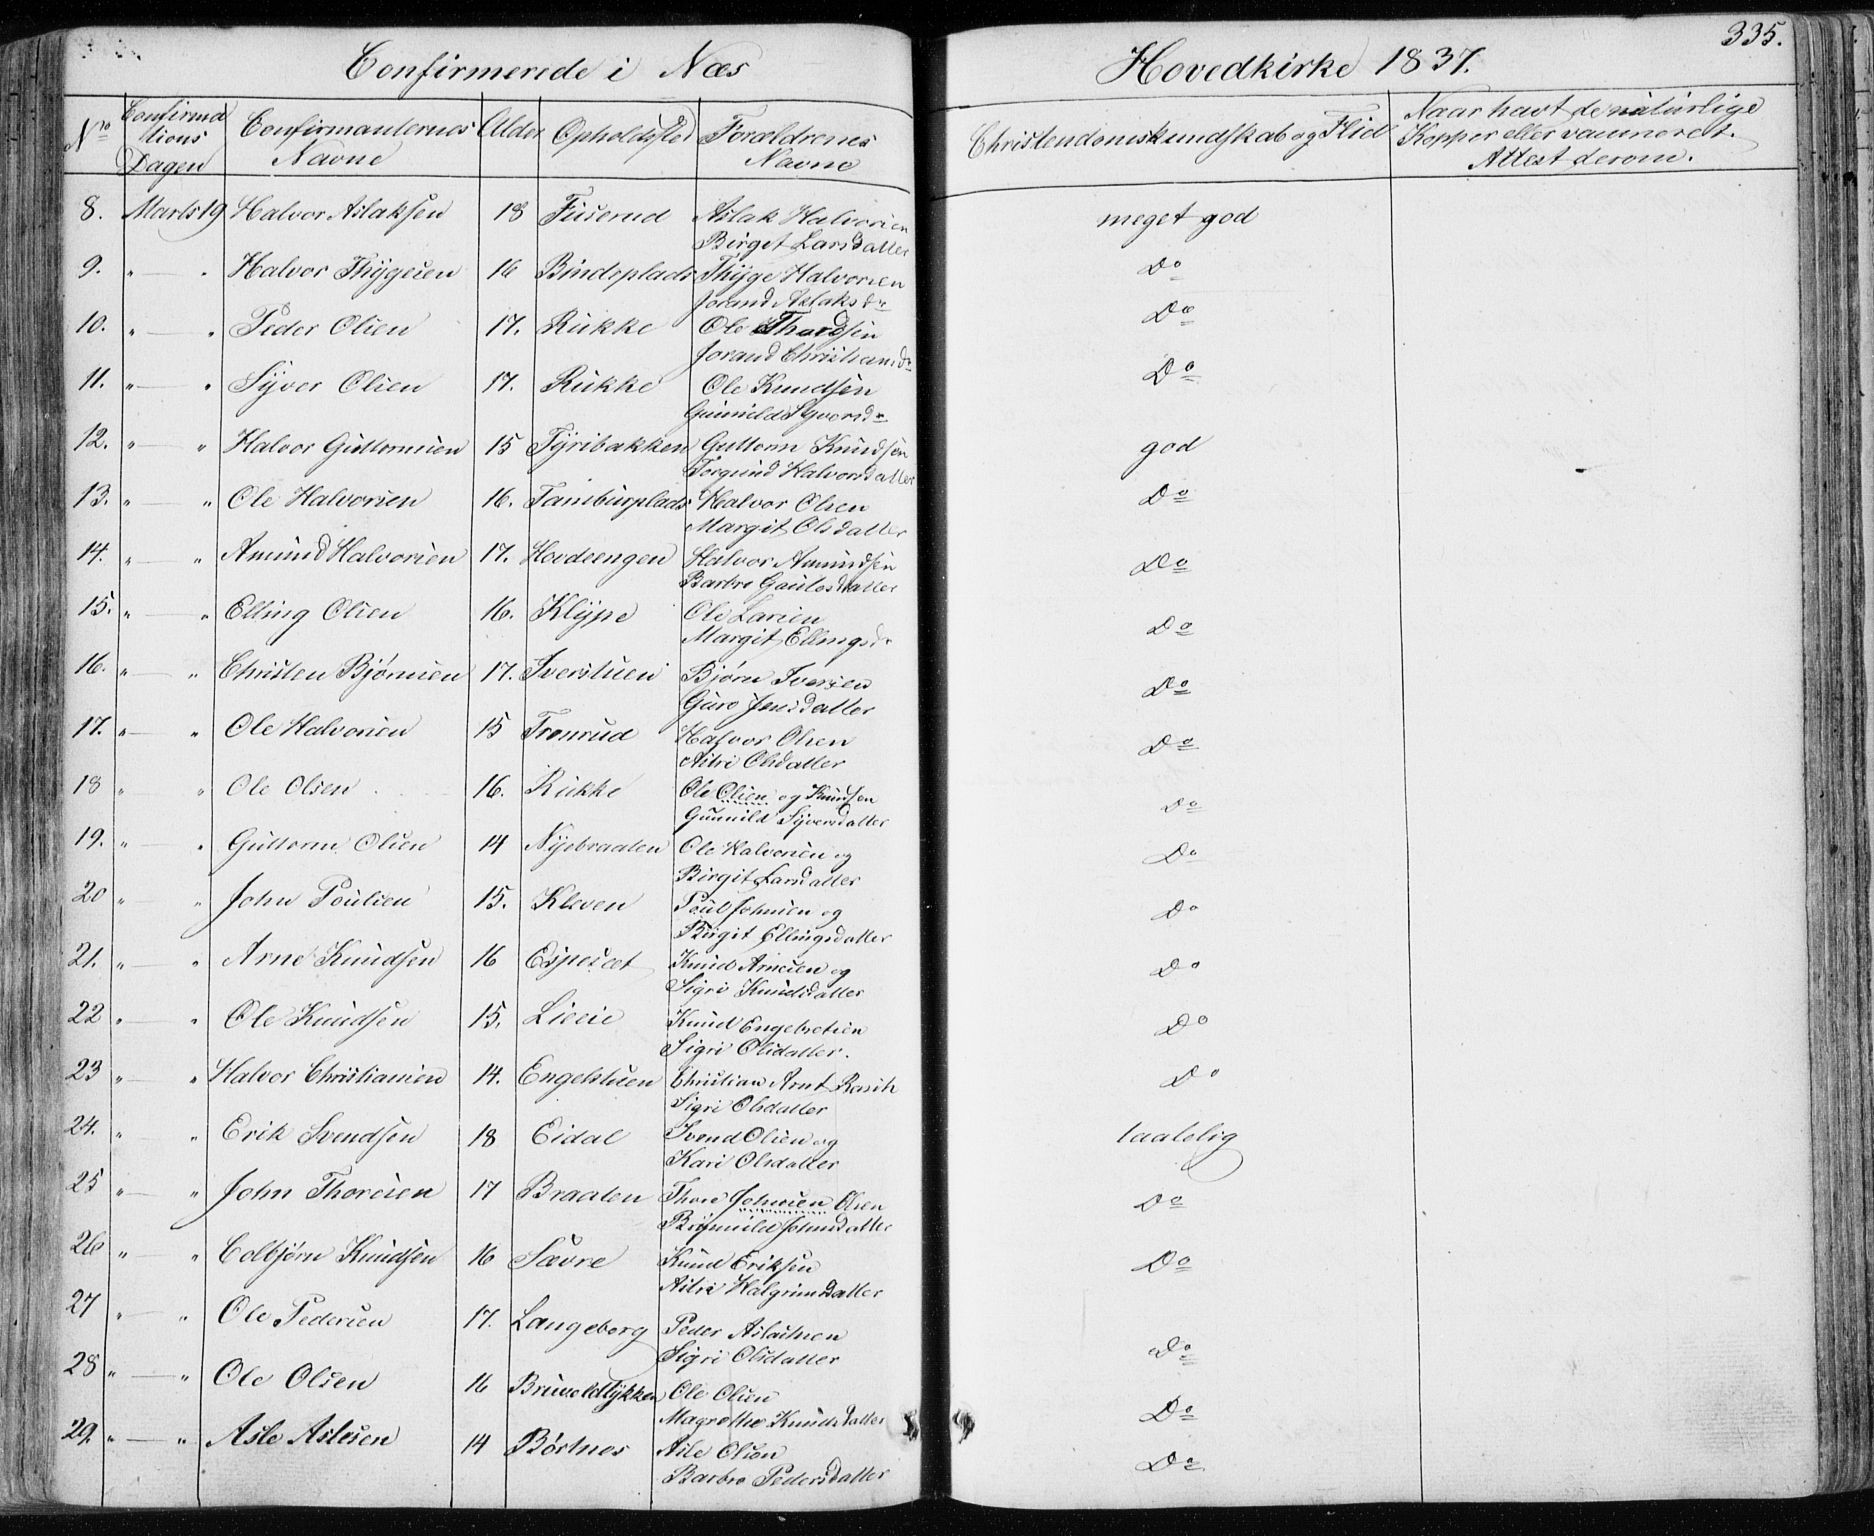 Confirmerede i Næs Hovedkirke 1837. 335.
Nro Confirmations Dagen Confirmanternes Navne Alder Opholdssted Forældrenes Navne Christendomskundskab og Flid Naar havt de naturlige Kopper eller vaccineret. Attest derom.
8. Marts 19 Halvor Aslaksen 18 Fuserud Aslak Halvorsen meget god
Birget Larsdatter
9. " — " Halvor Thygesen 16 Bindeplads Thyge Halvorsen Do
Jorand Aslaksdr
10. " — " Peder Olsen 17. Rukke Ole Thordsen Do
Jorand Christiansdr
11. " — " Syver Olsen 17. Rukke Ole Knudsen Do
Gunnild Syversdr
12. " — " Halvor Guttormsen 15 Tyribakken Guttorm Knudsen god
Torgund Halvorsdatter
13. " — " Ole Halvorsen 16. Tamburplads Halvor Olsen Do
Margit Olsdatter
14. " — " Amund Halvorsen 17. Hovdeengen Halvor Amundsen Do
Barbro Gaulesdatter
15. " — " Elling Olsen 16. Klype Ole Larsen Do
Margit Ellingsdr
16. " — " Christen Bjørnsen 17. Iverstuen Bjørn Iversen Do
Guro Jensdatter
17. " — " Ole Halvorsen 15 Tronrud Halvor Olsen Do
Astri Olsdatter
18 " " Ole Olsen 16. Rukke Ole Olsen og Knudsen Do
Gunnild Syversdatter
19. " — " Guttorm Olsen 14 Nyebraaten Ole Halvorsen og Do
Birgit Larsdatter
20 " — " John Poulsen 15. Kleven Poul Johnsen og Do
Birgit Ellingsdatter
21. " — " Arne Knudsen 16 Espeset Knud Arnesen og Do
Sigri Knudsdatter
22 " — " Ole Knudsen 15. Lieeie Knud Engebretsen Do
Sigri Olsdatter.
23 " — " Halvor Christiansen 14. Engelstuen Christian Arnt Do
Sigri Olsdatter
24. " " Erik Svendsen 18 Eidal Svend Olsen og taalelig
Kari Olsdatter
25 " — " John Thoresen 17 Braaten Thore Johnsen Olsen Do
Johnsdatter
26 " " Colbjørn Knudsen 16 Sævre Knud Eriksen Do
Astri Halgrimsdatter
27 " — " Ole Pedersen 17. Langeborg Peder Do
Sigri Olsdatter
28 " — " Ole Olsen 16 Bruvoldlykken Ole Olsen Do
Magrethe Knudsdatter
29. " — " Asle Aslesen 14 Børtnes Asle Olson Do
Barbro Pedersdatter